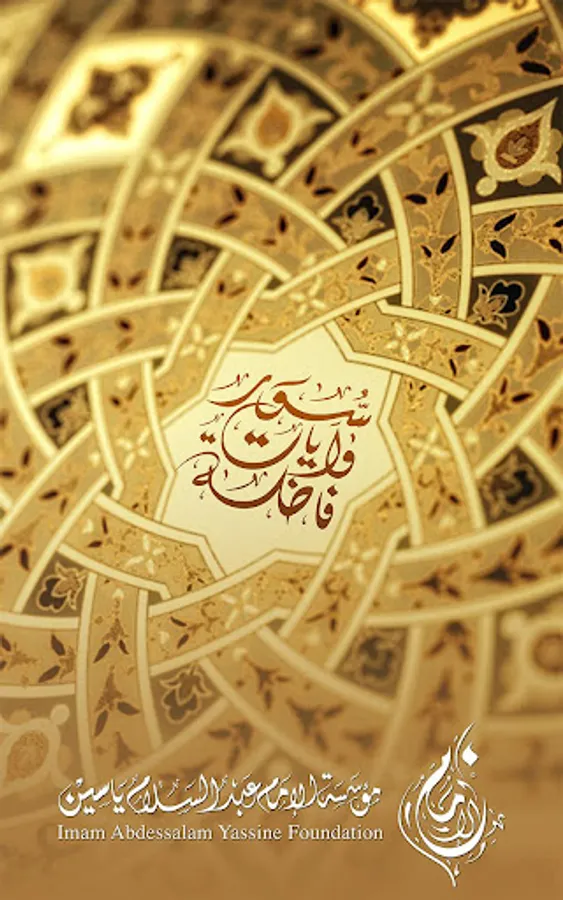 سُّور
وآيات
فاضلة
مؤسسة الإمام عبد السلام ياسين
Imam Abdessalam Yassine Foundation
الإمام